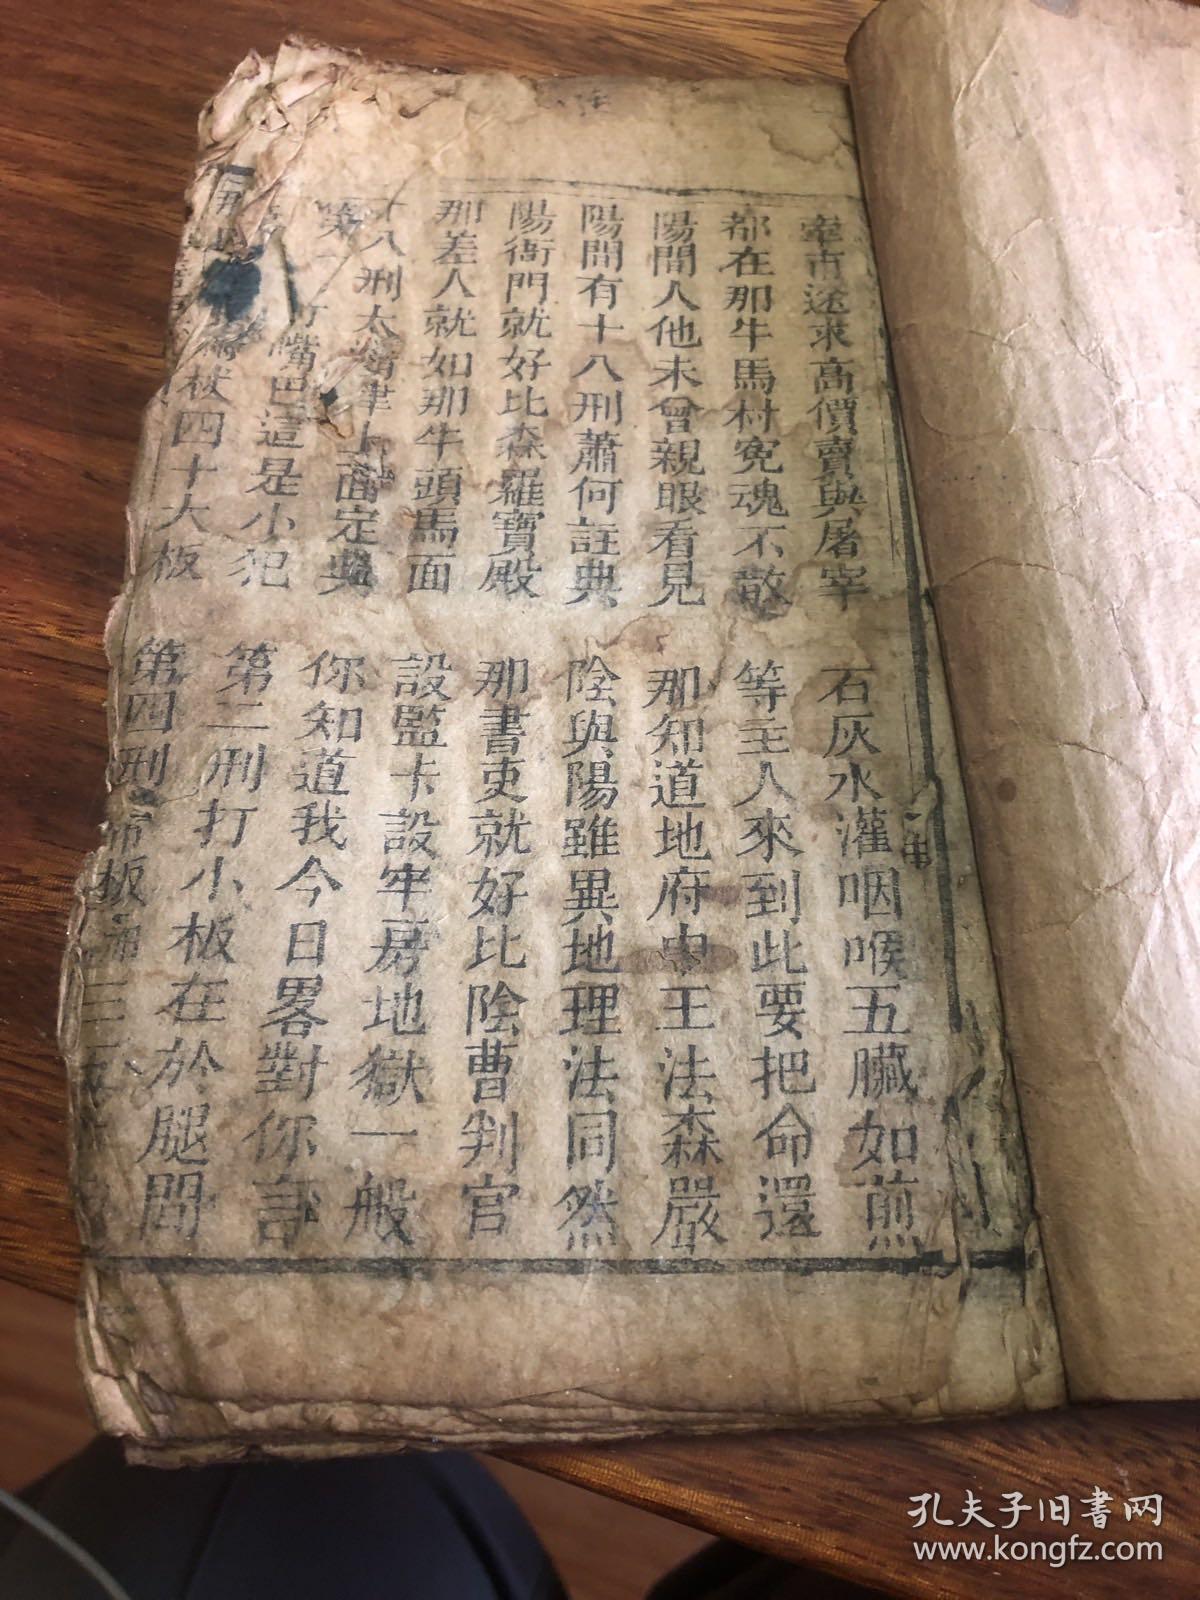 牽市途求高價賣與屠宰
石灰水灌咽喉五臟如煎
都在那牛馬村冤魂不散
等主人來到此要把命還
陽間人他未曾親眼看見
那知道地府中王法森嚴
陽間有十八刑蕭何註典
陰與陽雖異地理法同然
陽衙門就好比森羅寶殿
那書吏就好比陰曹判官
那差人就如那牛頭馬面
設監卡設牢房地獄一般
十八刑太清律上面定典
你知道我今日畧對你言
第一打嘴巴這是小犯
第二刑打小板在於腿間
杖四十大板
第四刑 板 三
孔夫子旧书网
www.kongfz.com